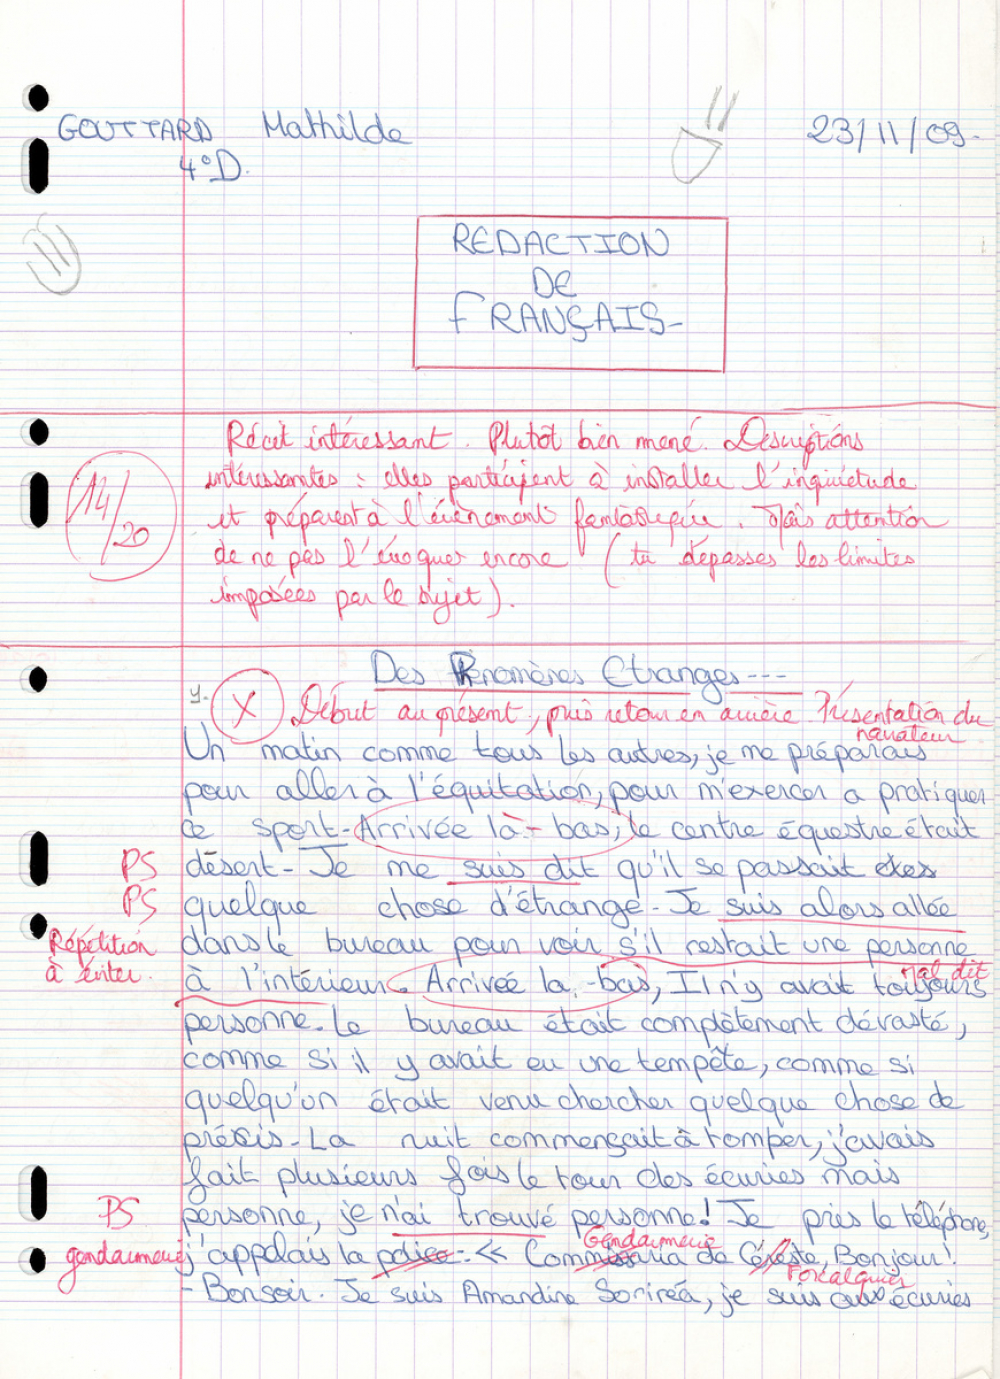 GOUTTARD Mathilde 23/11/09.
4°D.
REDACTION
DE
FRANÇAIS-
Récit intéressant. Plutôt bien mené. Descriptions
intéressantes : elles participent à installer l'inquiétude
14/20
et préparent à l'événement fantastique. Mais attention
de ne pas l'évoquer encore (tu dépasses les limites
imposées par le sujet).
Des Phénomènes Etranges---
X Début au présent, puis retour en arrière. Présentation du
narrateur
Un matin comme tous les autres, je me préparais
pour aller à l'équitation, pour m'exercer a pratiquer
ce sport-Arrivée là-bas, le centre équestre était
PS désert-Je me suis dit qu'il se passait
PS quelque chose d'étrange-Je suis alors allée
Répétition dans le bureau pour voir s'il restait une personne
à éviter. à l'intérieur. Arrivée la-bas, Il n'y avait toujours
mal dit
personne-Le bureau était complètement dévasté,
comme si il y avait eu une tempête, comme si
quelqu'un était venu chercher quelque chose de
précis-La nuit commençait à tomper, j'avais
fait plusieurs fois le tour des écuries mais
PS personne, je n'ai trouvé personne! Je près le téléphone,
Gendarmerie
gendarmerie j'appelais la police-<< Commissaria de Céreste, Bonjour!
Forcalquier
-Bonsoir. Je suis Amandine Soriréa, je suis aux écuries